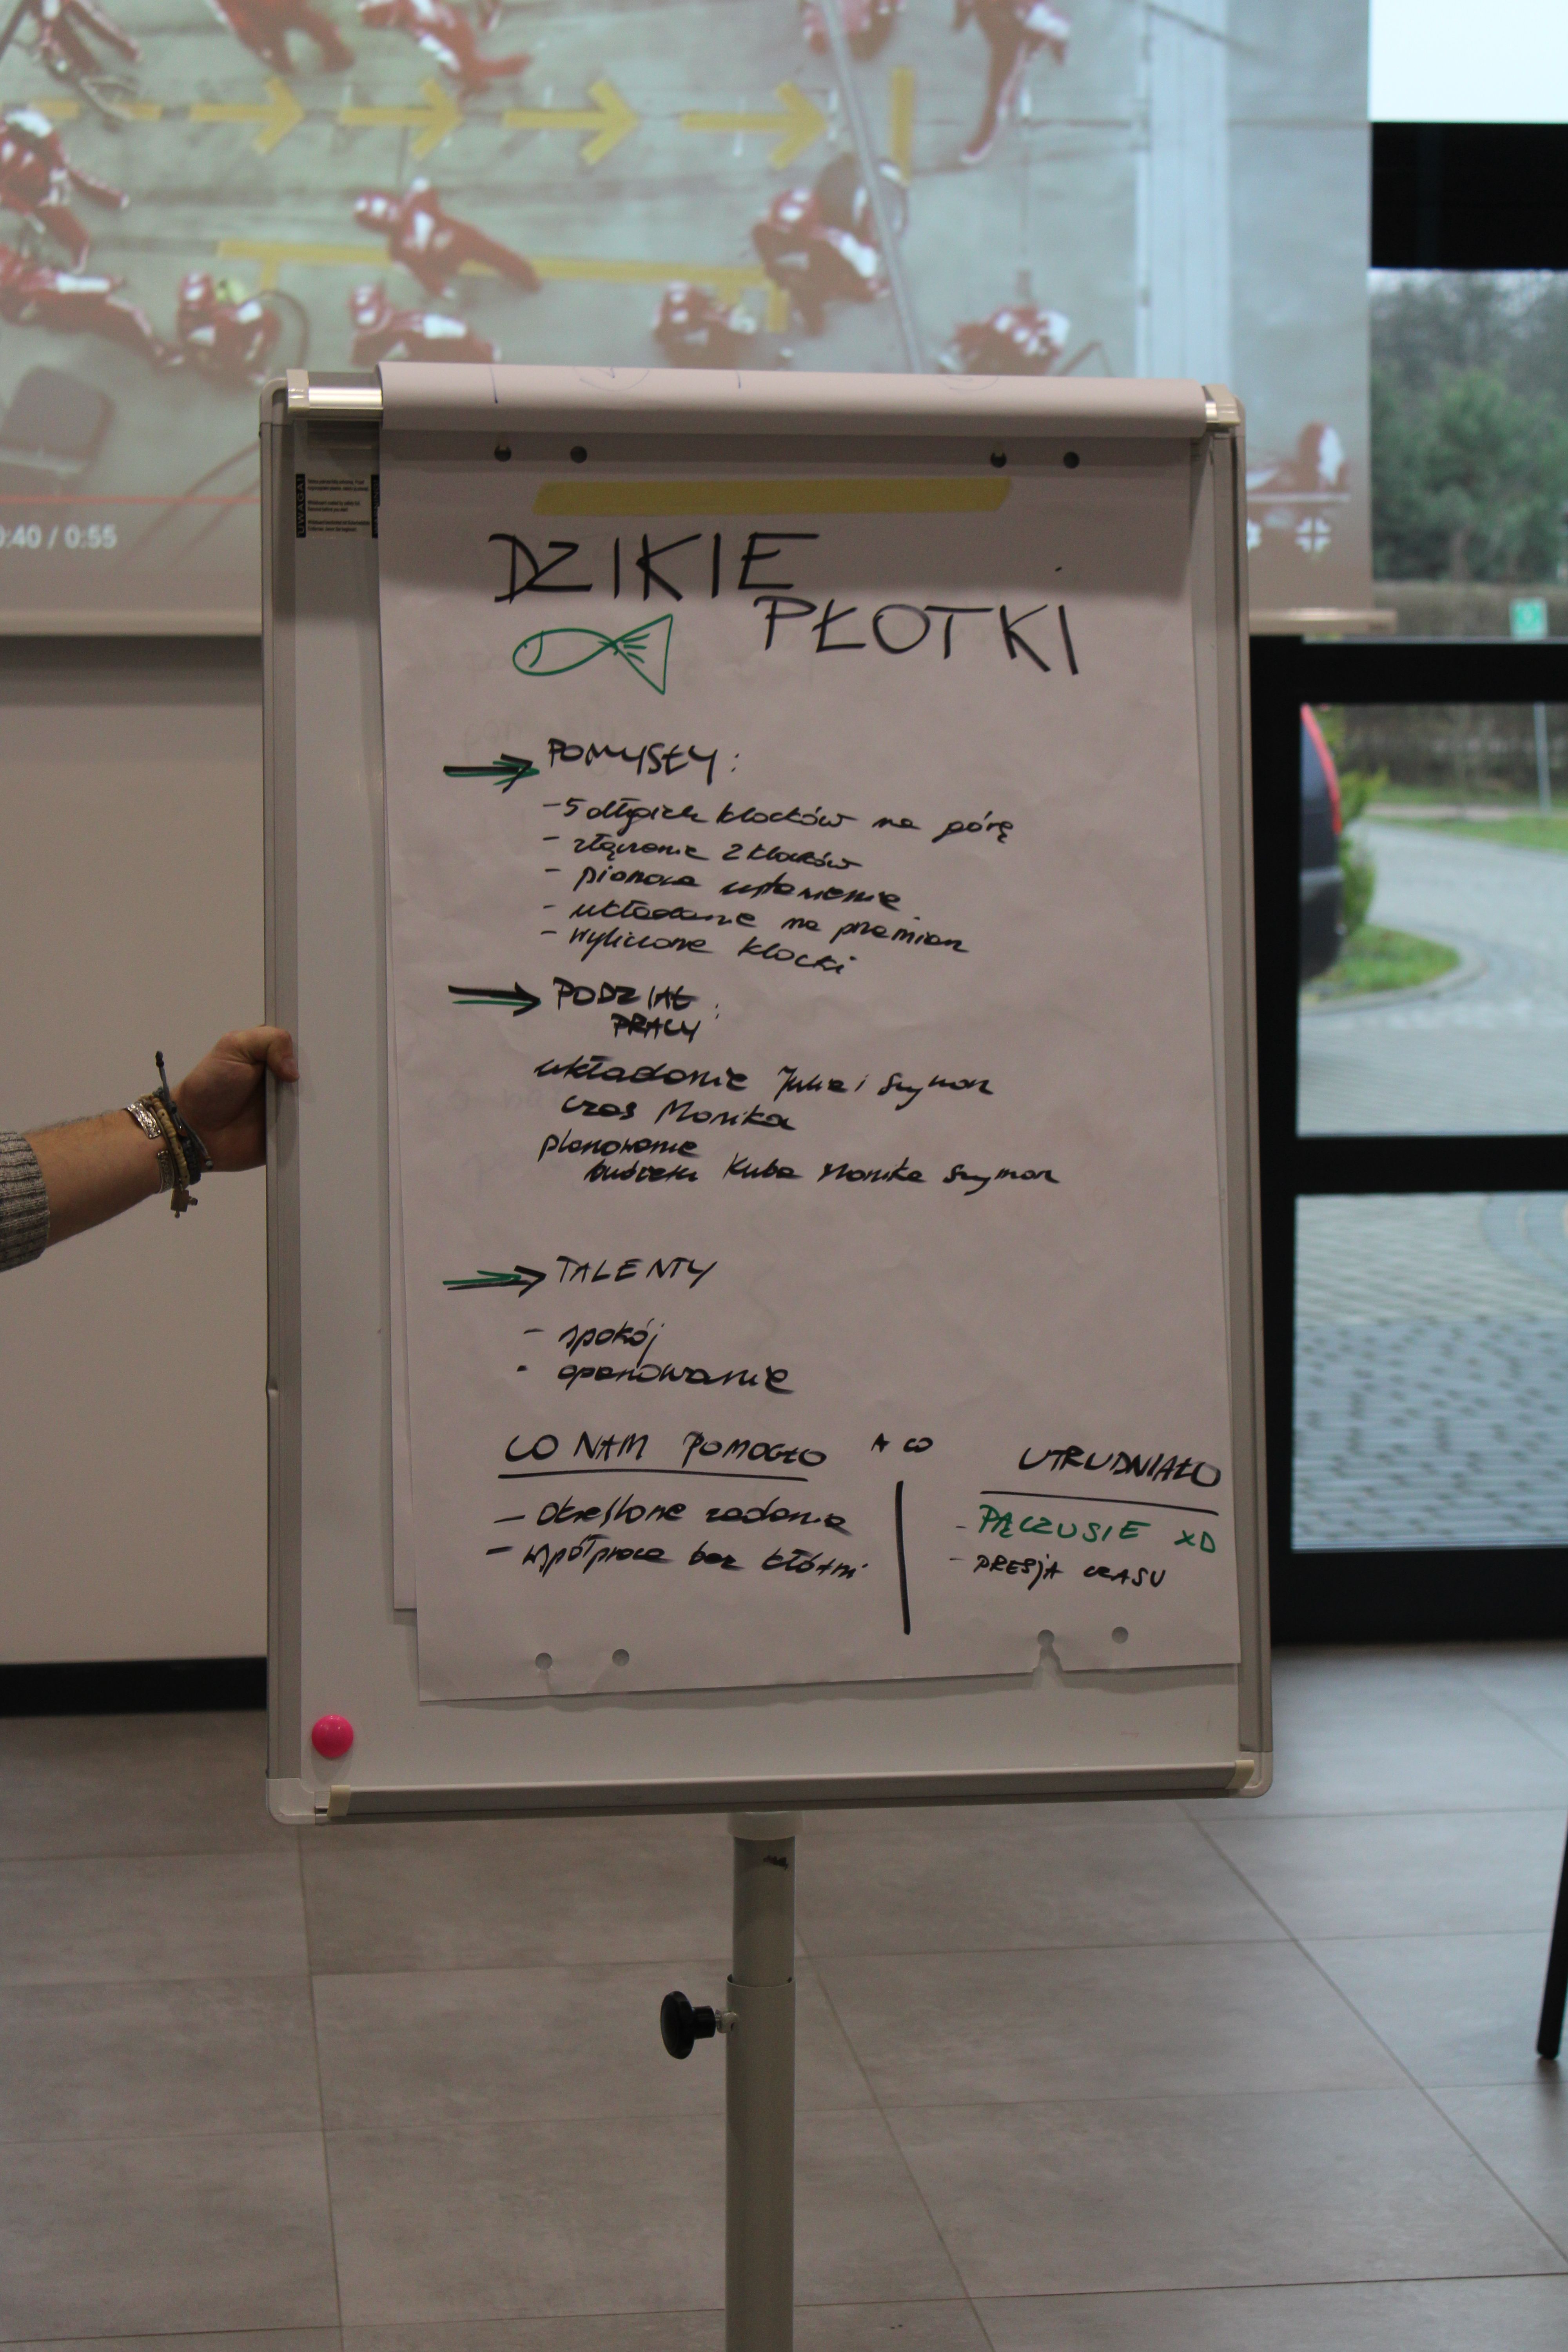 0:40 / 0:55
UWAGA!
DZIKIE
PŁOTKI
POMYSŁY:
- 5 długich klocków na górę
- złączenie 2 klocków
- pionowe ustawienie
- układanie na przemian
- wyliczone klocki
PODZIAŁ:
PRACY
układanie Julia i Szymon
czas Monika
planowanie
budżetu Kuba Monika Szymon
TALENTY
- spokój
- opanowanie
CO NAM POMOGŁO A CO UTRUDNIAŁO
- określone zadania
- współpraca bez kłótni
- PĄCZUSIE XD
- PRESJA CZASU